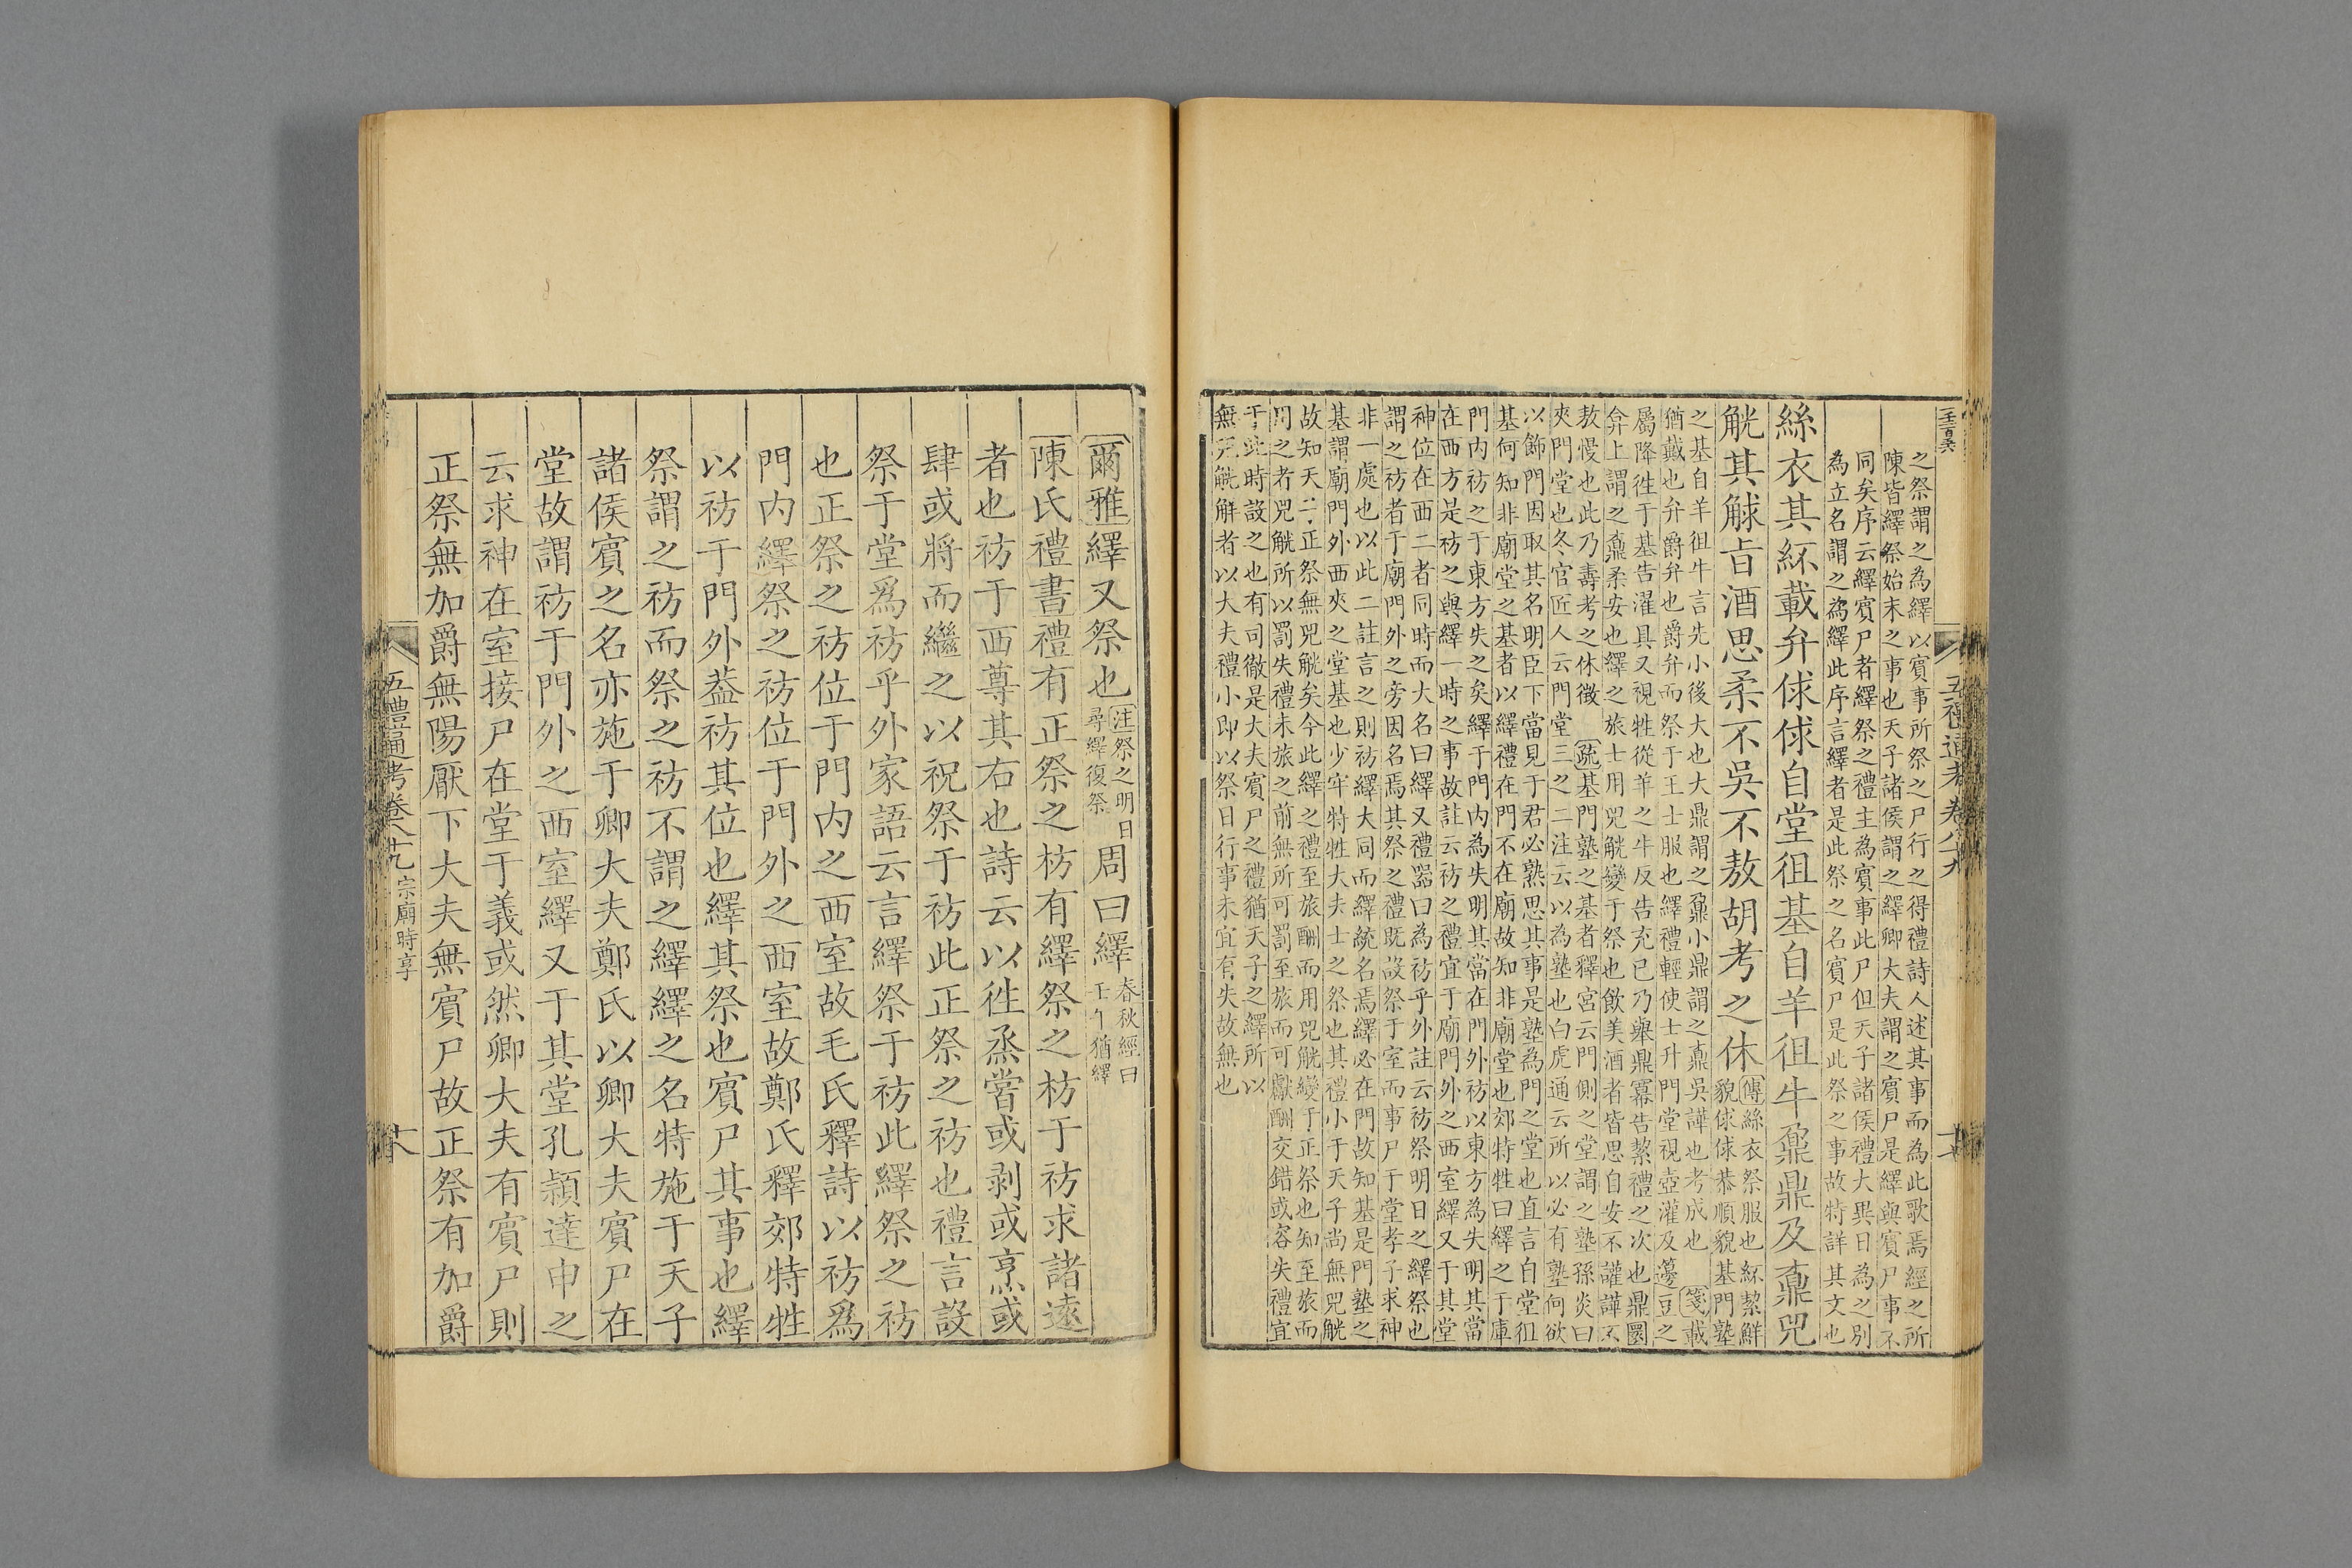 之祭謂之為繹以賓事所祭之尸行之得禮詩人述其事而為此歌焉經之所
陳皆繹祭始末之事也天子諸侯謂之繹卿大夫謂之賓尸是繹與賓尸事不
同矣序云繹賓尸者繹祭之禮主為賓事此尸但天子諸侯禮大異日為之別
為立名謂之為繹此序言繹者是此祭之名賓尸是此祭之事故特詳其文也
絲衣其紑載弁俅俅自堂徂基自羊徂牛鼐鼎及鼒兕
觥其觩旨酒思柔不吳不敖胡考之休
傳絲衣祭服也紑絜鮮
貌俅俅恭順貌基門塾
之基自羊徂牛言先小後大也大鼎謂之鼐小鼎謂之鼒吳譁也考成也 箋載
猶戴也弁爵弁也爵弁而祭于王士服也繹禮輕使士升門堂視壺濯及籩豆之
屬降往于基告濯具又視牲從羊之牛反告充已乃舉鼎冪告絜禮之次也鼎圜
弇上謂之鼒柔安也繹之旅士用兕觥變于祭也飲美酒者皆思自安不讙譁不
敖慢也此乃壽考之休徵 疏基門塾之基者釋宮云門側之堂謂之塾孫炎曰
夾門堂也冬官匠人云門堂三之二注云以為塾也白虎通云所以必有塾何欲
以飾門因取其名明臣下當見于君必熟思其事是塾為門之堂也直言自堂徂
基何知非廟堂之基者以繹禮在門不在廟故知非廟堂也郊特牲曰繹之于庫
門內祊之于東方失之矣繹于門內為失明其當在門外祊以東方為失明其當
在西方是祊之與繹一時之事故註云祊之禮宜于廟門外之西室繹又于其堂
神位在西二者同時而大名曰繹又禮器曰為祊乎外註云祊祭明日之繹祭也
謂之祊者于廟門外之旁因名焉其祭之禮既設祭于室而事尸于堂孝子求神
非一處也以此二註言之則祊繹大同而繹統名焉繹必在門故知基是門塾之
基謂廟門外西夾之堂基也少牢特牲大夫士之祭也其禮小于天子尚無兕觥
故知天子正祭無兕觥矣今此繹之禮至旅酬而用兕觥變于正祭也知至旅而
用之者兕觥所以罰失禮未旅之前無所可罰至旅而可獻酬交錯或容失禮宜
于此時設之也有司徹是大夫賓尸之禮猶天子之繹所以
無兕觥解者以大夫禮小即以祭日行事未宜有失故無也
爾雅繹又祭也
注祭之明日
尋繹復祭
周曰繹
春秋經曰
壬午猶繹
陳氏禮書禮有正祭之祊有繹祭之祊于祊求諸遠
者也祊于西尊其右也詩云以往烝嘗或剥或烹或
肆或將而繼之以祝祭于祊此正祭之祊也禮言設
祭于堂爲祊乎外家語云言繹祭于祊此繹祭之祊
也正祭之祊位于門內之西室故毛氏釋詩以祊爲
門內繹祭之祊位于門外之西室故鄭氏釋郊特牲
以祊于門外葢祊其位也繹其祭也賓尸其事也繹
祭謂之祊而祭之祊不謂之繹繹之名特施于天子
諸侯賓之名亦施于卿大夫鄭氏以卿大夫賓尸在
堂故謂祊于門外之西室繹又于其堂孔穎達申之
云求神在室接尸在堂于義或然卿大夫有賓尸則
正祭無加爵無陽厭下大夫無賓尸故正祭有加爵
五禮通考卷八十九 宗廟時享